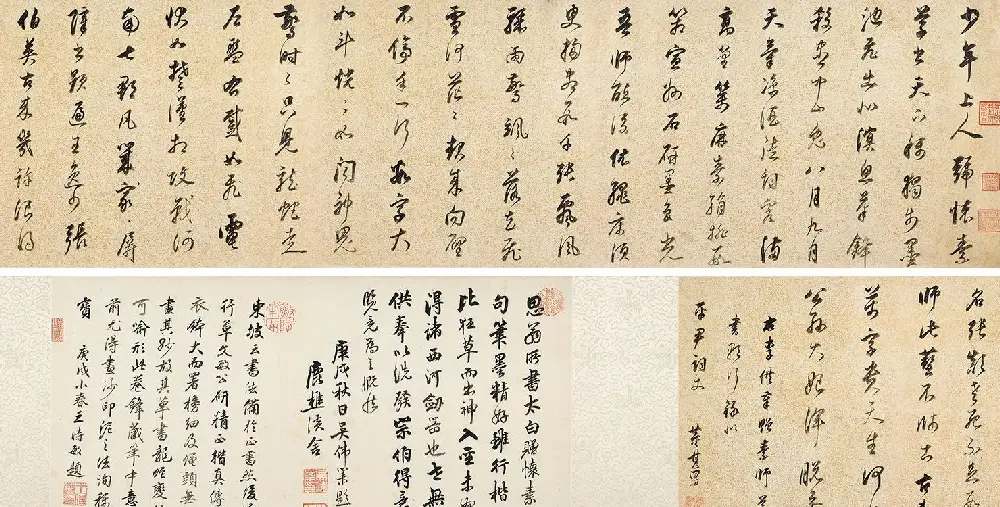 少年上人號懷素
草書天下稱獨步墨
池飛出北溟魚筆鋒
殺盡中山兔八月九月
天氣涼酒徒詞客滿
高堂箋麻素絹排數
箱宣州石硯墨色光
吾師醉後倚繩床須
臾掃盡數千張飄風
驟雨驚颯颯落花飛
雪何茫茫起來向壁
不停手一行數字大
如斗恍恍如聞神鬼
驚時時只見龍蛇走
左盤右蹙如飛電
狀如楚漢相攻戰湖
南七郡凡幾家家屏
障書題遍王逸少張
伯英古來幾許浪得
名張顛老死不足數
師此藝不師古古來
萬字貴天生何
公孫大娘渾脫
右李供奉贈素師草
書歌行錄似
平尹詞丈 董其昌
思翁所書太白贈懷素
句筆墨精好雖行楷
比狂草而出神入聖未
得諸西河劍器也世無
供奉以洗發崇伯得意
覽竟為之慨然
庚戌秋日吳偉業題
鹿樵溪舍
東坡云書法備於正書然後
行草文敏公研精正楷真傳
衣鉢大而署榜細及繩頭無
畫其妙故其草書龍蛇變
可喻形此卷鋒藏筆中意
前尤得畫沙印泥之法洵稱
寶 庚戌小春王時敏題